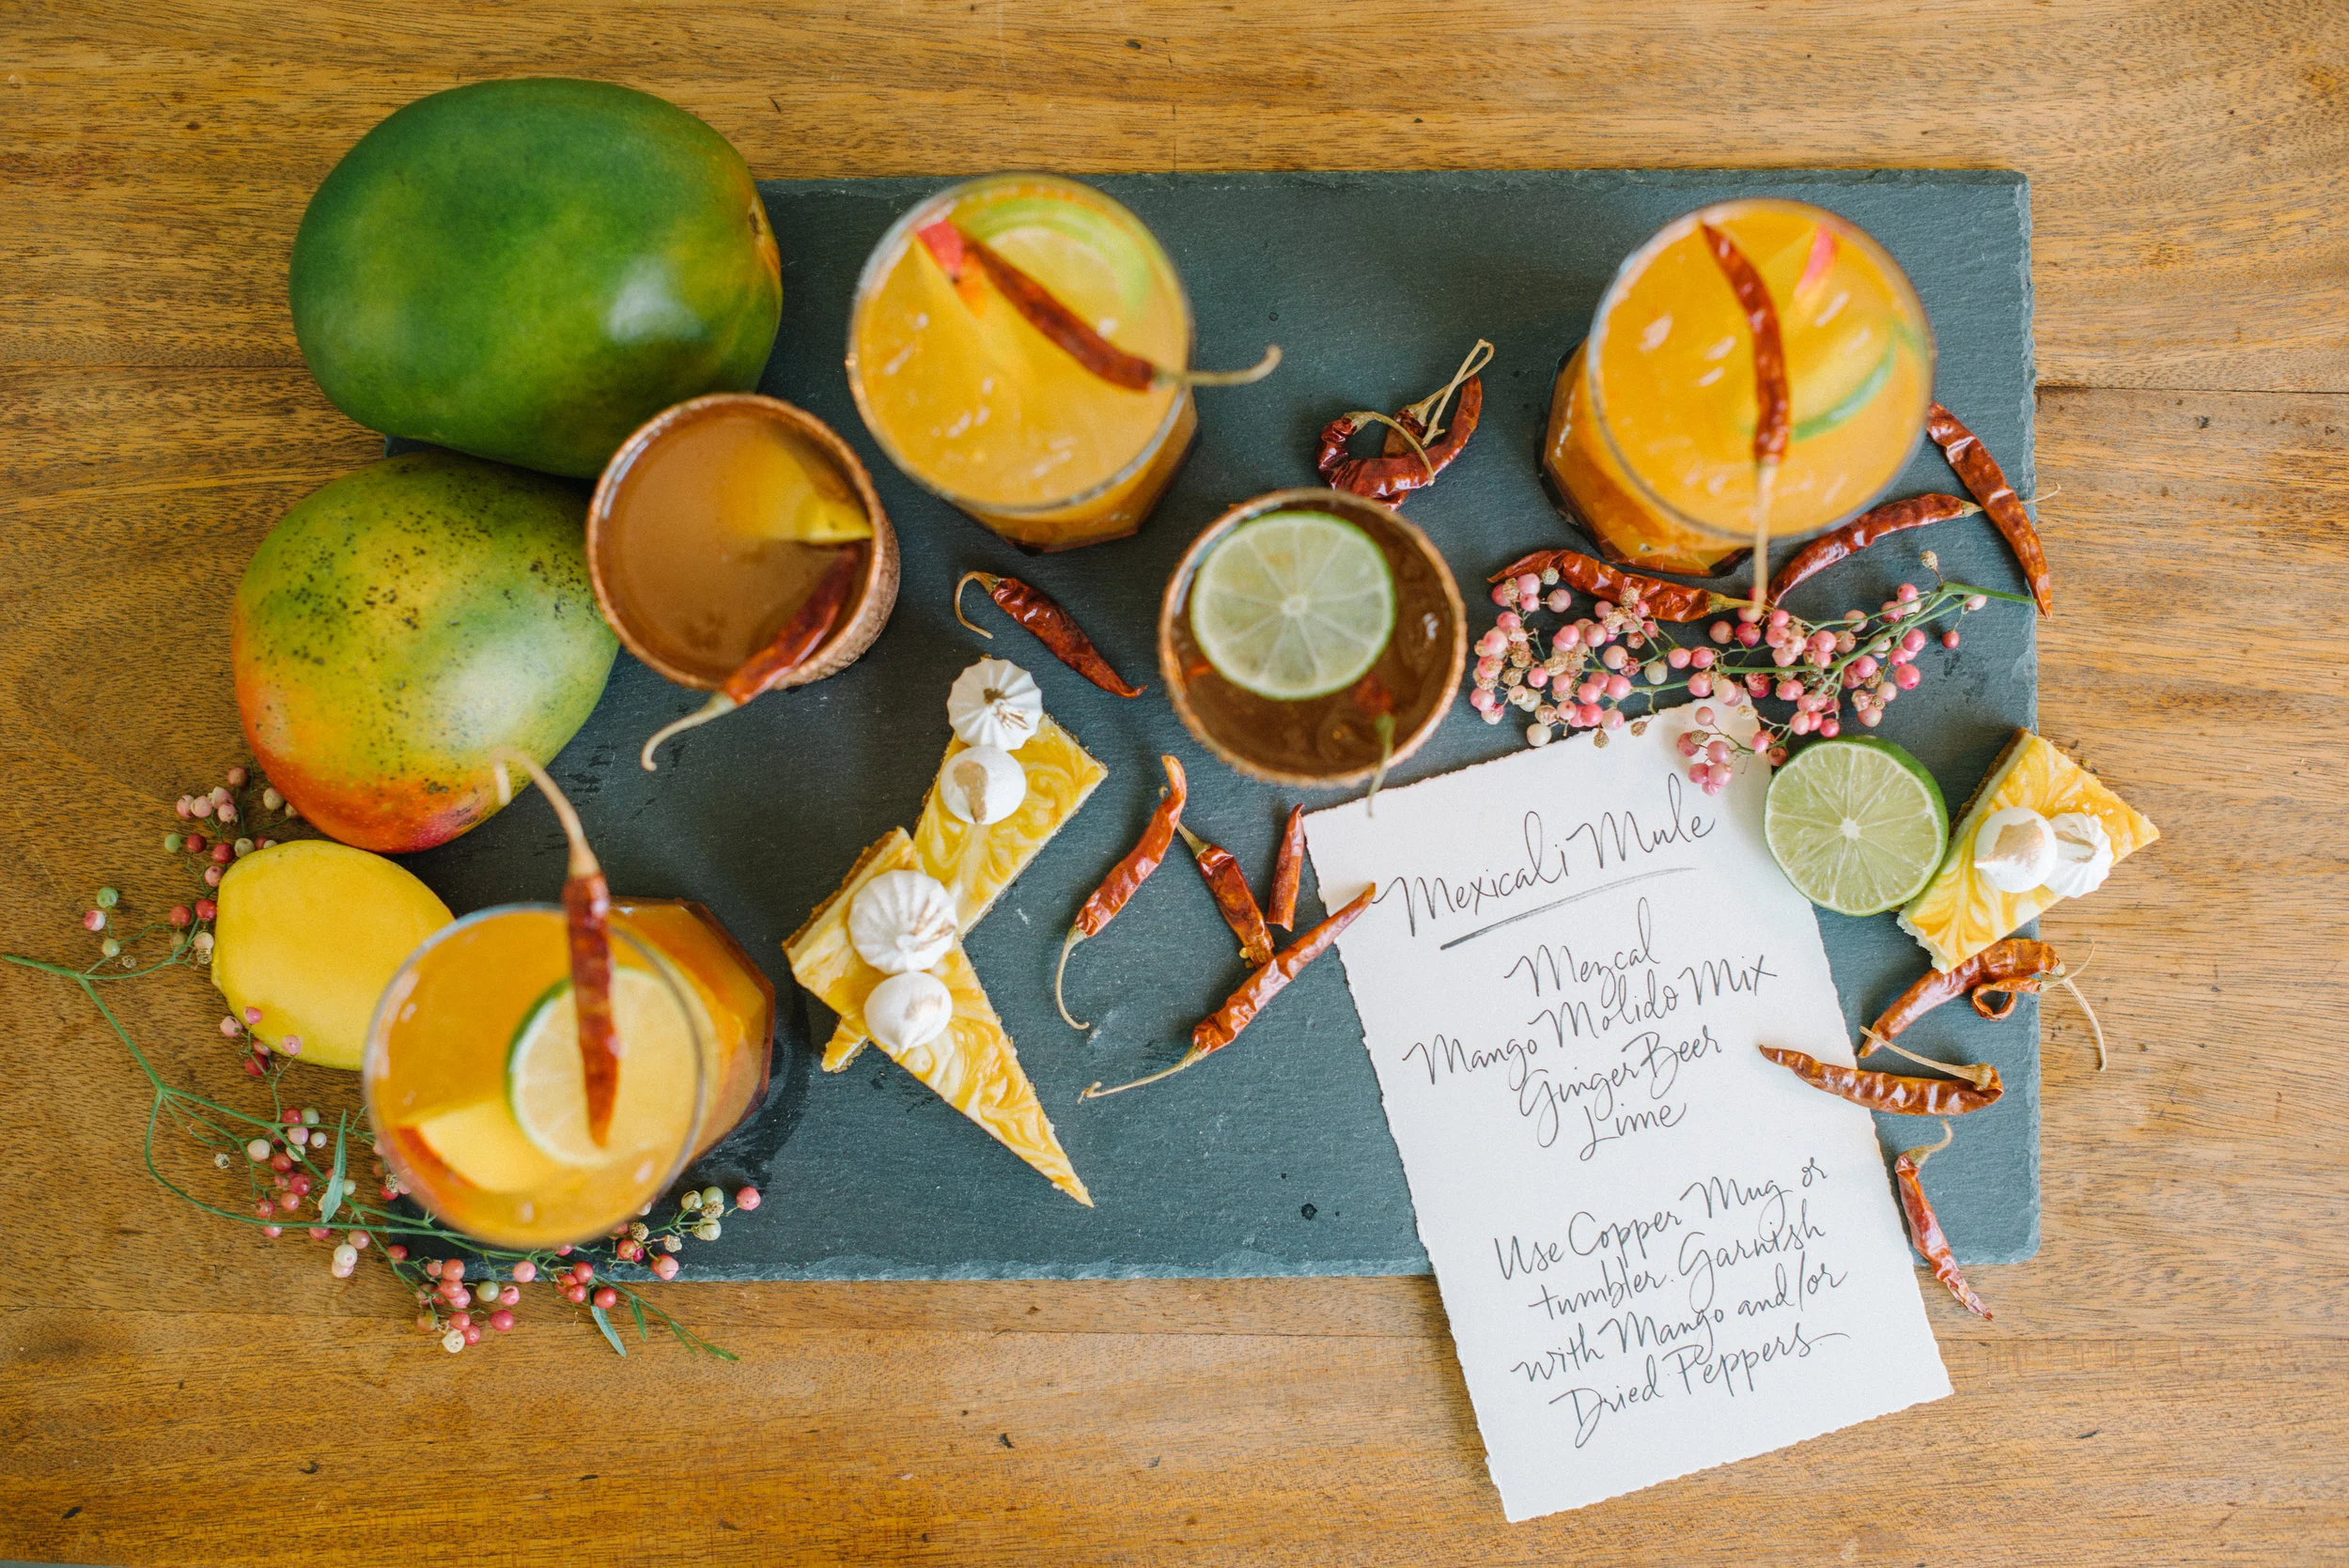 Mexicali Mule
Mezcal
Mango Molido Mix
Ginger Beer
Lime
Use Copper Mug or
tumbler. Garnish
with Mango and/or
Dried Peppers.